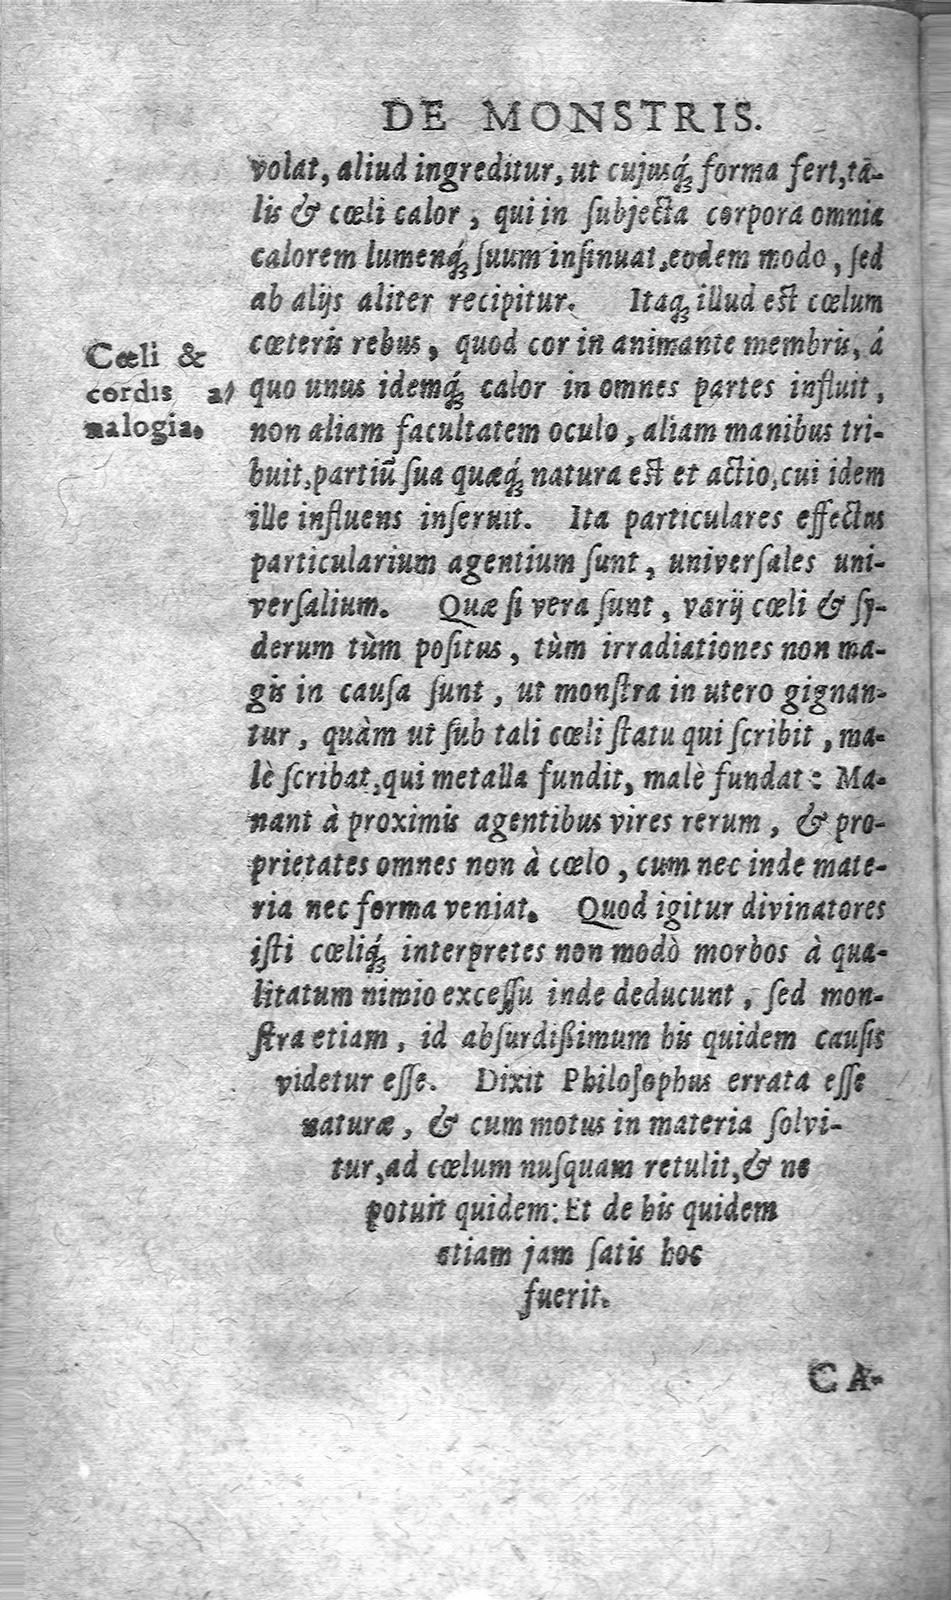 DE MONSTRIS.
volat, aliud ingreditur, ut cujusq́ꝫ forma fert, tā-
lis & cœli calor, qui in ſubjecta corpora omnia
calorem lumenq́ꝫ ſuum inſinuat, eodem modo, ſed
ab alijs aliter recipitur. Itaqꝫ illud est cœlum
cœteris rebus, quod cor in animante membris, á
Cœli &
cordis a/
nalogia.
quo unus idemq́ꝫ calor in omnes partes influit,
non aliam facultatem oculo, aliam manibus tri-
buit, partiũ ſua quæq́ꝫ natura est et actio, cui idem
ille influens inſeruit. Ita particulares effectus
particularium agentium ſunt, univerſales uni-
verſalium. Quæ ſi vera ſunt, varij cœli & ſy-
derum tùm poſitus, tùm irradiationes non ma-
gis in cauſa ſunt, ut monſtra in utero gignan-
tur, quàm ut ſub tali cœli ſtatu qui ſcribit, ma-
lè ſcribat, qui metalla fundit, malè fundat: Ma-
nant à proximis agentibus vires rerum, & pro-
prietates omnes non à cœlo, cum nec inde mate-
ria nec forma veniat. Quod igitur divinatores
iſti cœliq́ꝫ interpretes non modò morbos à qua-
litatum nimio exceſſu inde deducunt, ſed mon-
ſtra etiam, id abſurdißimum his quidem cauſis
videtur eſſe. Dixit Philoſophus errata eſſe
naturæ, & cum motus in materia ſolvi-
tur, ad cœlum nuſquam retulit, & ne
potuit quidem: Et de his quidem
etiam jam ſatis hoc
fuerit.
CA-